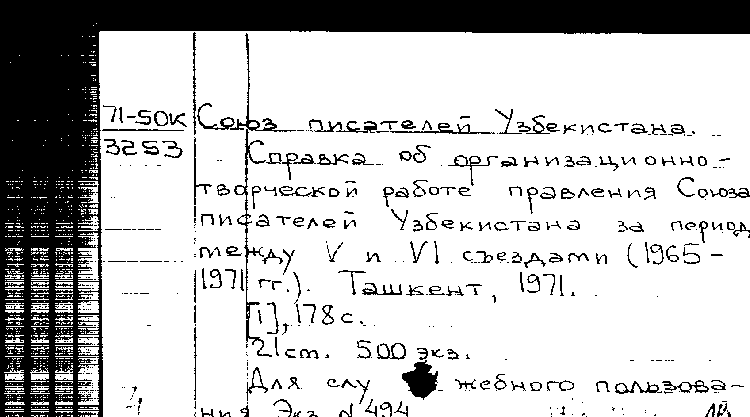 71-50К Союз писателей Узбекистана.
3253 Справка об организационно-
творческой работе правления Союза
писателей Узбекистана за период
между V и VI съездами (1965-
1971 гг.). Ташкент, 1971.
[1], 178 с.
21 см. 500 экз.
Для слу жебного пользова-
ния Экз. № 494